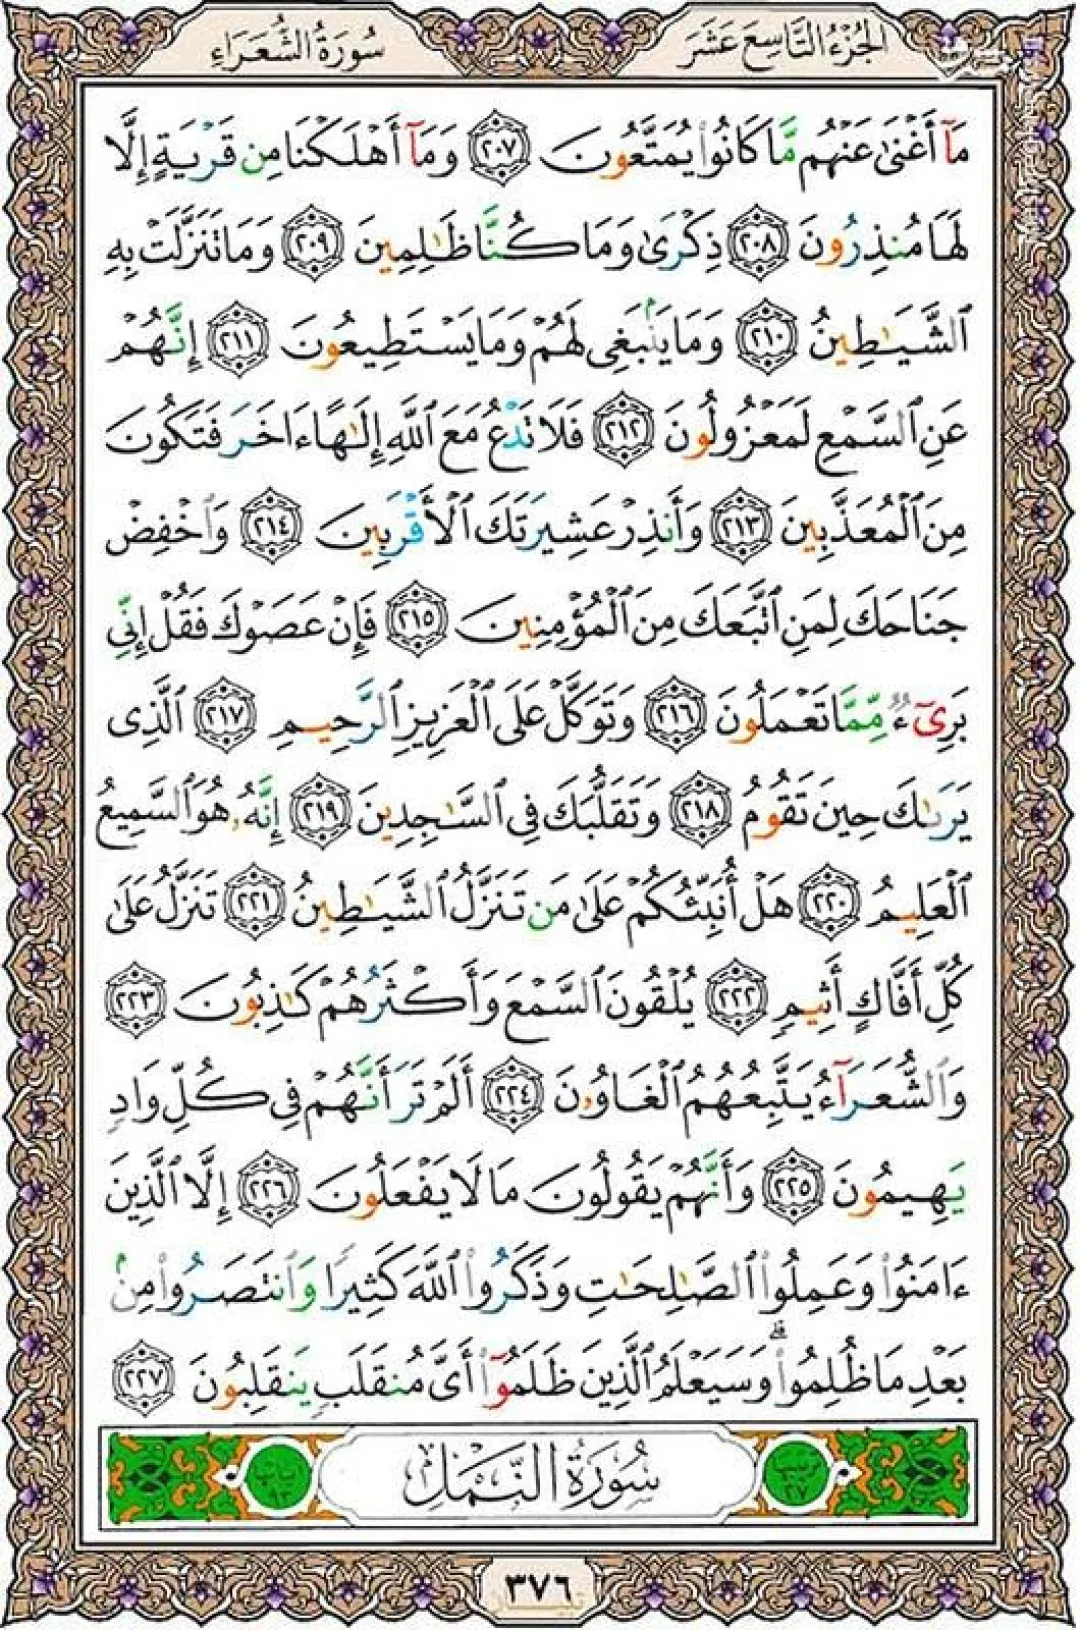 الجزء التاسع عشر
سورة الشعراء
مَآ أَغْنَىٰ عَنْهُم مَّا كَانُوا۟ يُمَتَّعُونَ ﴿٢٠٧﴾ وَمَآ أَهْلَكْنَا مِن قَرْيَةٍ إِلَّا
لَهَا مُنذِرُونَ ﴿٢٠٨﴾ ذِكْرَىٰ وَمَا كُنَّا ظَٰلِمِينَ ﴿٢٠٩﴾ وَمَا تَنَزَّلَتْ بِهِ
ٱلشَّيَٰطِينُ ﴿٢١٠﴾ وَمَا يَنۢبَغِى لَهُمْ وَمَا يَسْتَطِيعُونَ ﴿٢١١﴾ إِنَّهُمْ
عَنِ ٱلسَّمْعِ لَمَعْزُولُونَ ﴿٢١٢﴾ فَلَا تَدْعُ مَعَ ٱللَّهِ إِلَٰهًا ءَاخَرَ فَتَكُونَ
مِنَ ٱلْمُعَذَّبِينَ ﴿٢١٣﴾ وَأَنذِرْ عَشِيرَتَكَ ٱلْأَقْرَبِينَ ﴿٢١٤﴾ وَٱخْفِضْ
جَنَاحَكَ لِمَنِ ٱتَّبَعَكَ مِنَ ٱلْمُؤْمِنِينَ ﴿٢١٥﴾ فَإِنْ عَصَوْكَ فَقُلْ إِنِّى
بَرِىٓءٌ مِّمَّا تَعْمَلُونَ ﴿٢١٦﴾ وَتَوَكَّلْ عَلَى ٱلْعَزِيزِ ٱلرَّحِيمِ ﴿٢١٧﴾ ٱلَّذِى
يَرَىٰكَ حِينَ تَقُومُ ﴿٢١٨﴾ وَتَقَلُّبَكَ فِى ٱلسَّٰجِدِينَ ﴿٢١٩﴾ إِنَّهُۥ هُوَ ٱلسَّمِيعُ
ٱلْعَلِيمُ ﴿٢٢٠﴾ هَلْ أُنَبِّئُكُمْ عَلَىٰ مَن تَنَزَّلُ ٱلشَّيَٰطِينُ ﴿٢٢١﴾ تَنَزَّلُ عَلَىٰ
كُلِّ أَفَّاكٍ أَثِيمٍ ﴿٢٢٢﴾ يُلْقُونَ ٱلسَّمْعَ وَأَكْثَرُهُمْ كَٰذِبُونَ ﴿٢٢٣﴾
وَٱلشُّعَرَآءُ يَتَّبِعُهُمُ ٱلْغَاوُۥنَ ﴿٢٢٤﴾ أَلَمْ تَرَ أَنَّهُمْ فِى كُلِّ وَادٍ
يَهِيمُونَ ﴿٢٢٥﴾ وَأَنَّهُمْ يَقُولُونَ مَا لَا يَفْعَلُونَ ﴿٢٢٦﴾ إِلَّا ٱلَّذِينَ
ءَامَنُوا۟ وَعَمِلُوا۟ ٱلصَّٰلِحَٰتِ وَذَكَرُوا۟ ٱللَّهَ كَثِيرًا وَٱنتَصَرُوا۟ مِنۢ
بَعْدِ مَا ظُلِمُوا۟ ۗ وَسَيَعْلَمُ ٱلَّذِينَ ظَلَمُوٓا۟ أَىَّ مُنقَلَبٍ يَنقَلِبُونَ ﴿٢٢٧﴾
ترتيبها ٢٧
سُورَةُ النَّمْلِ
آياتها ٩٣
٣٧٦